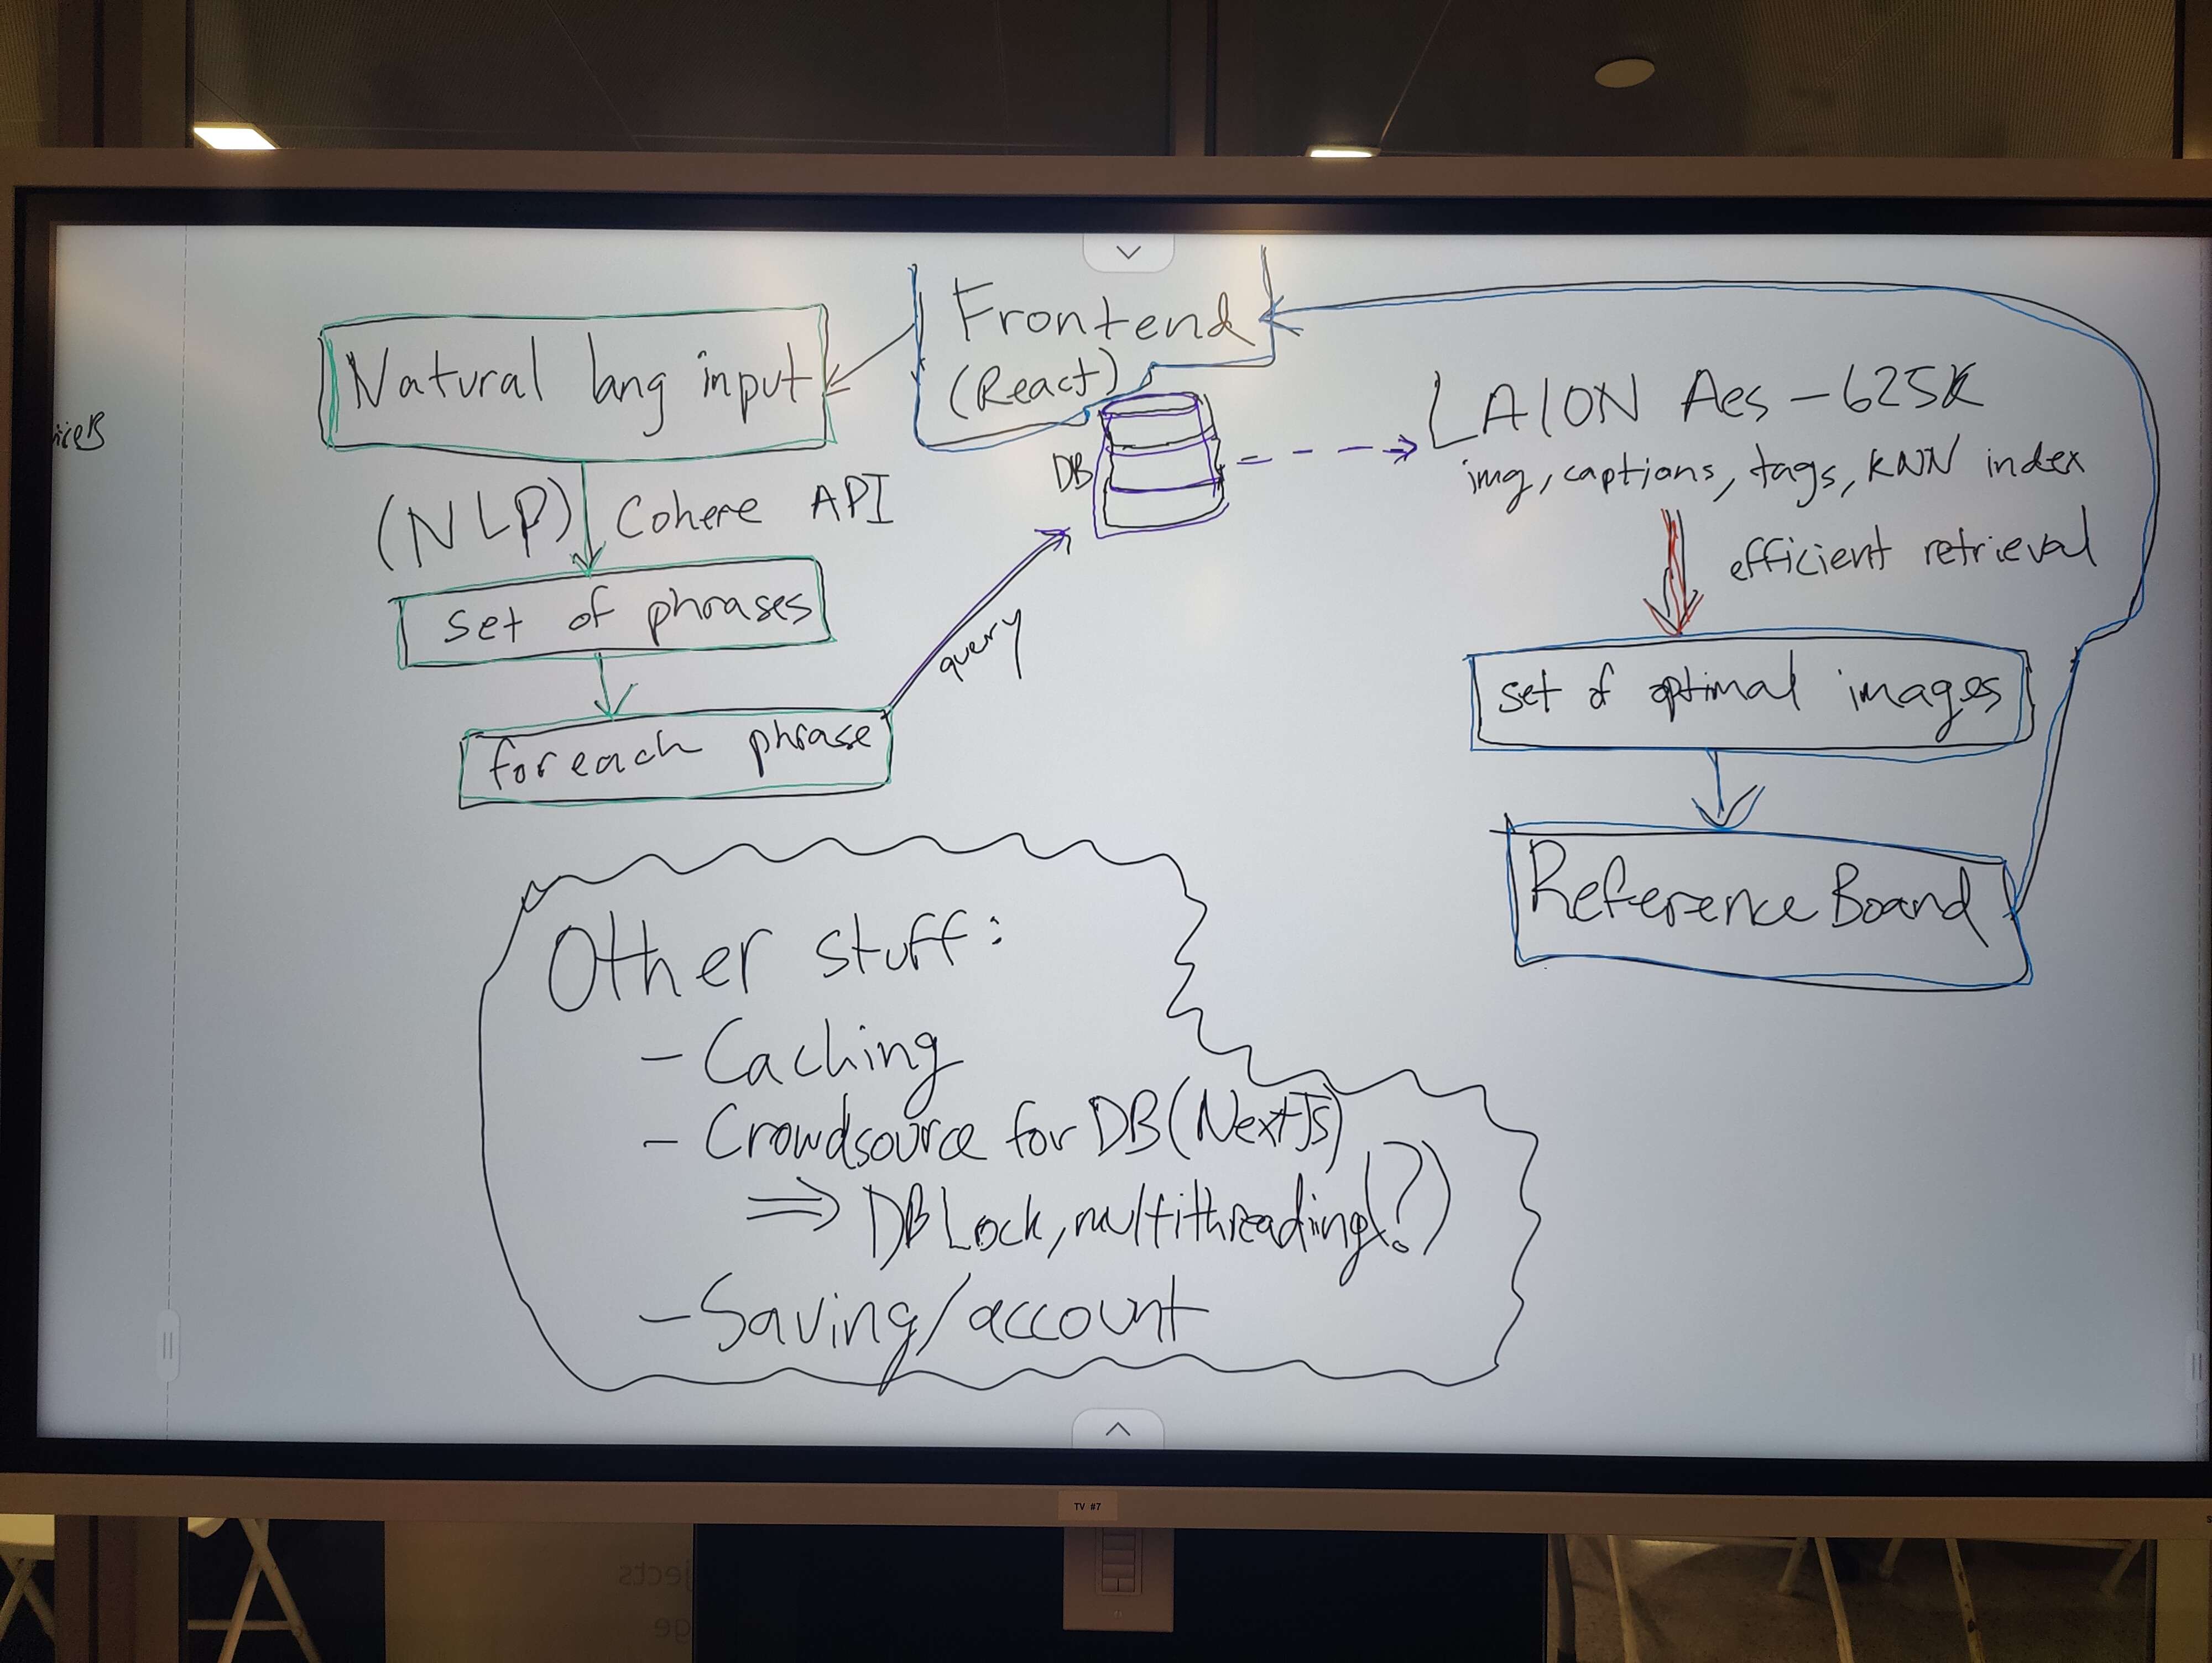 Frontend
(React)
Natural lang input
(NLP) Cohere API
set of phrases
foreach phrase
query
DB
LAION Aes - 625K
img, captions, tags, KNN index
efficient retrieval
set of optimal images
Reference Board
Other stuff:
- Caching
- Crowdsource for DB (NextJs)
⇒ DB Lock, multithreading(?)
- Saving/account
TV #7